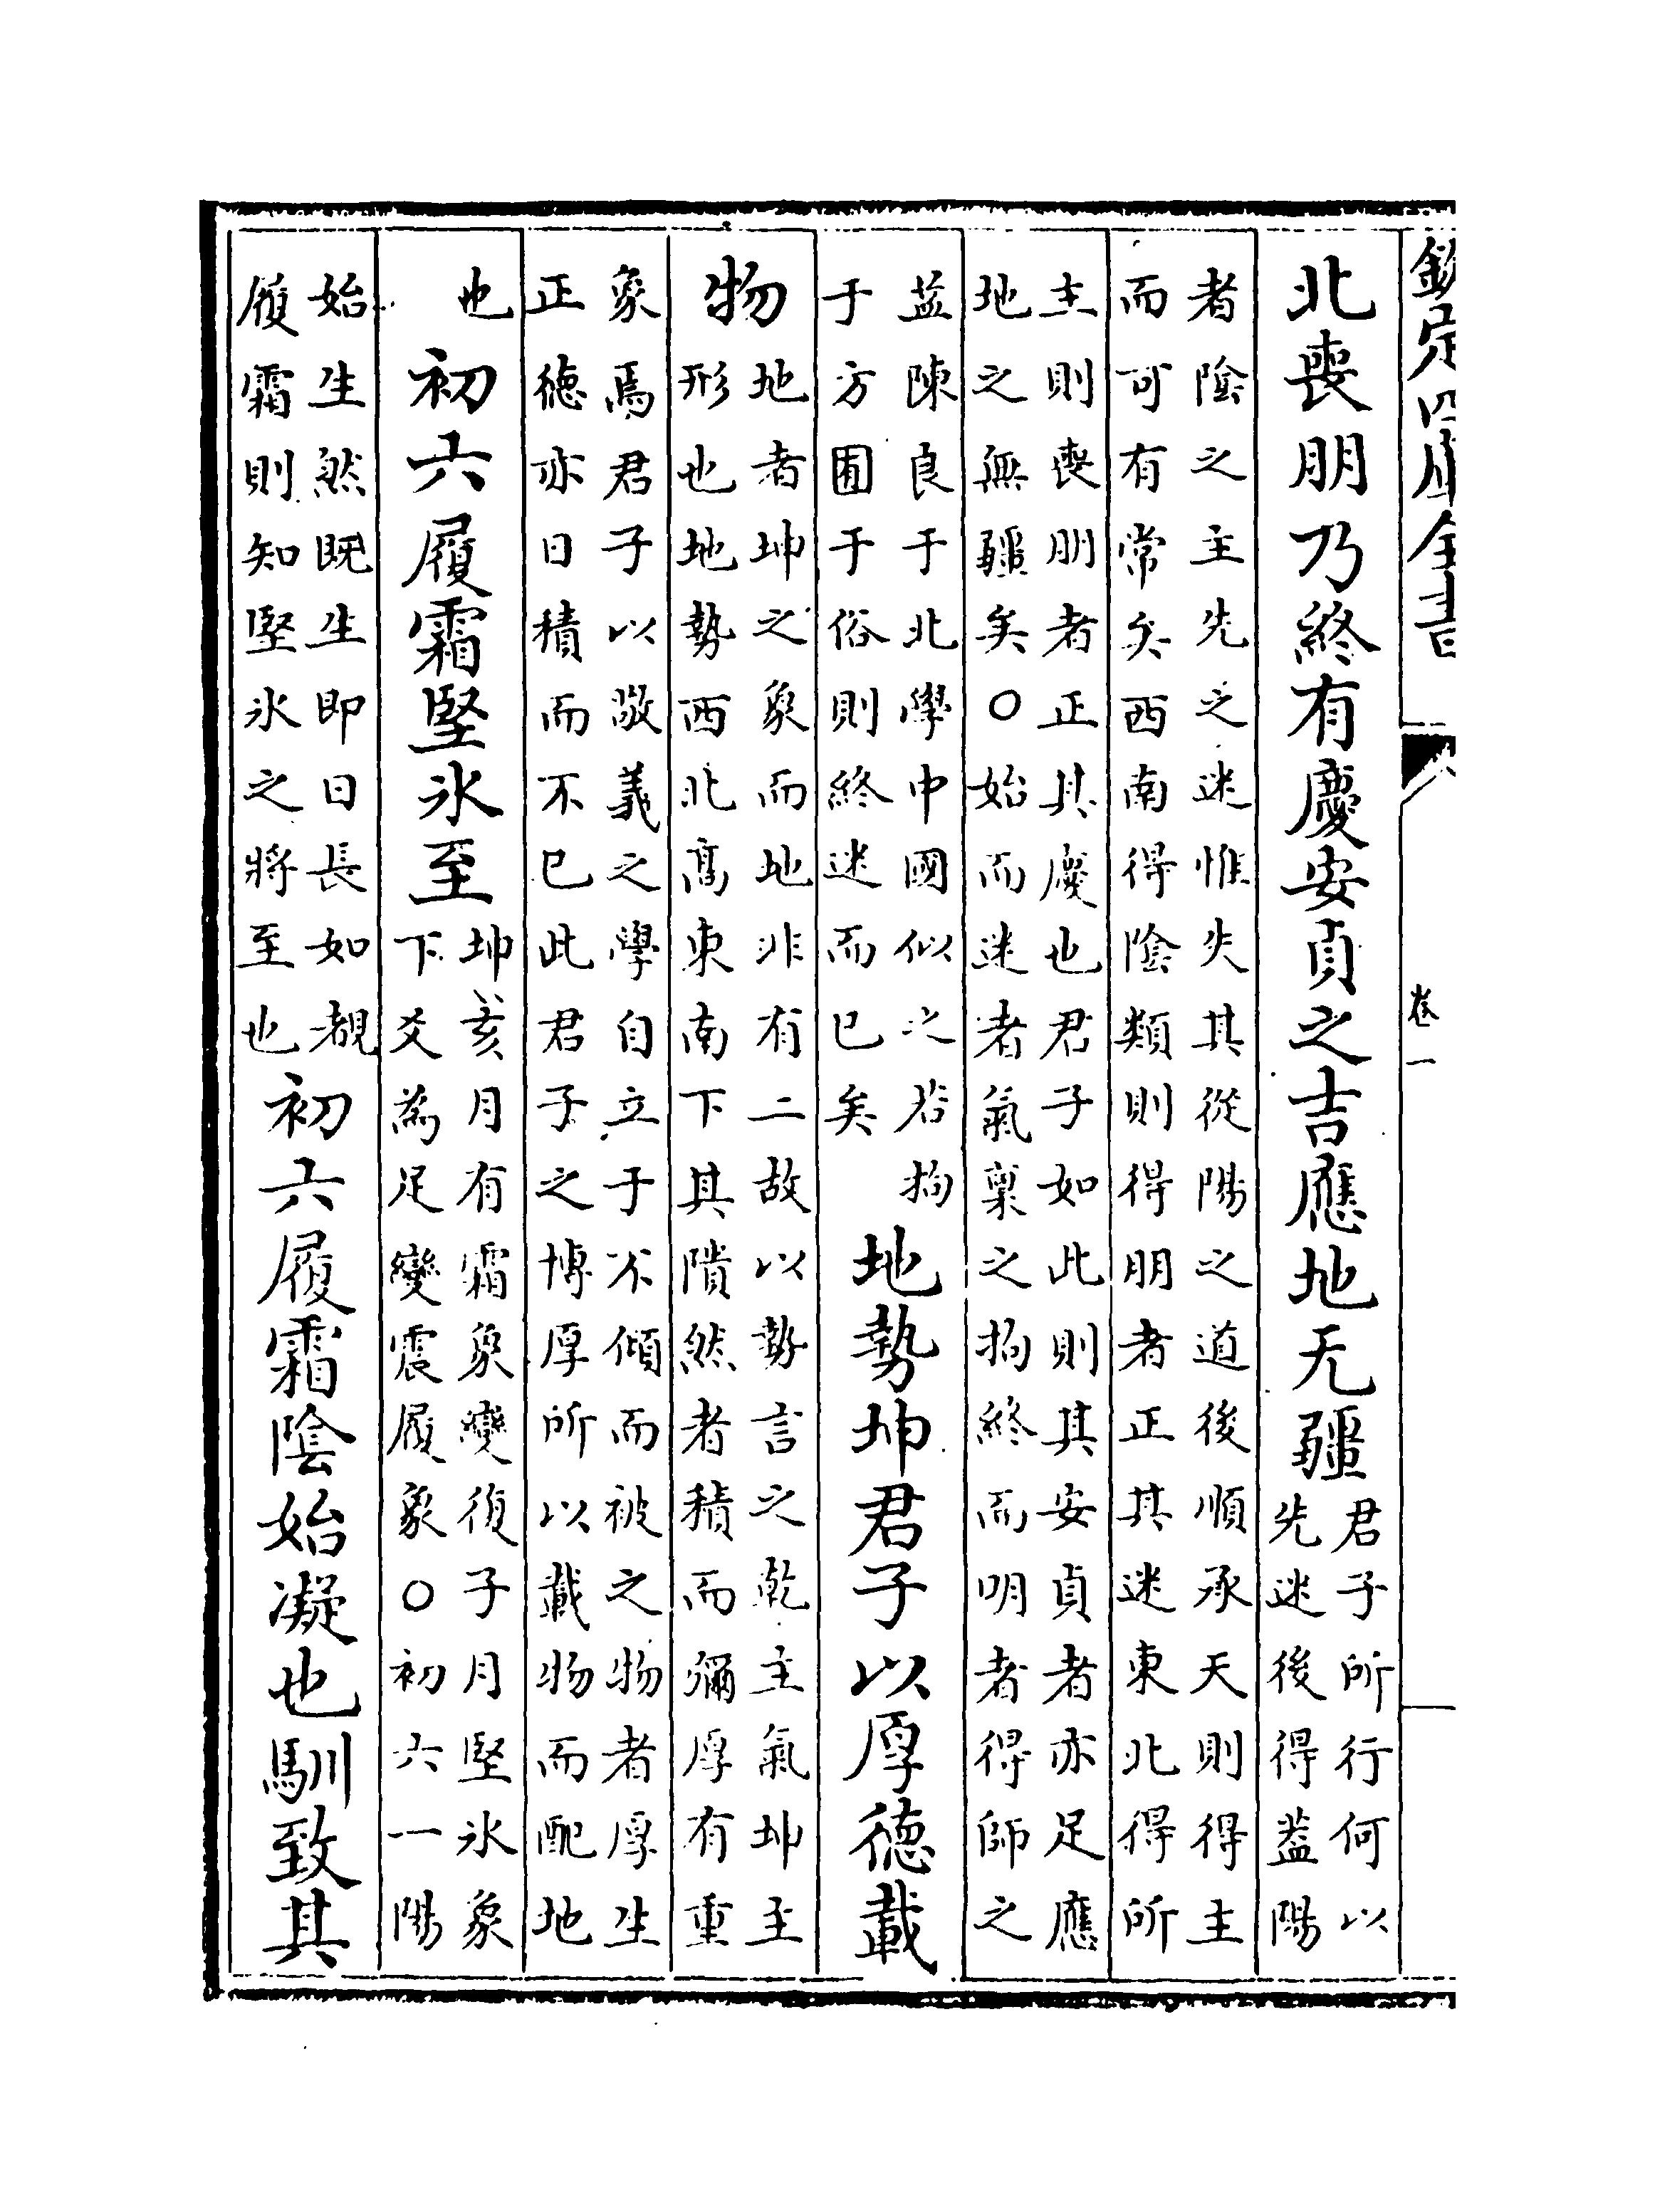 欽定四庫全書
卷一
北喪朋乃終有慶安貞之吉應地无疆
君子所行何以
先迷後得葢陽
者陰之主先之迷惟失其從陽之道後順承天則得主
而可有常矣西南得陰類則得朋者正其迷東北得所
主則喪朋者正其慶也君子如此則其安貞者亦足應
地之無疆矣○始而迷者氣稟之拘終而明者得師之
益陳良于北學中國似之若拘
于方囿于俗則終迷而已矣
地勢坤君子以厚德載
物
地者坤之象而地非有二故以勢言之乾主氣坤主
形也地勢西北髙東南下其隤然者積而彌厚有重
象焉君子以敬義之學自立于不傾而被之物者厚生
正德亦日積而不已此君子之博厚所以載物而配地
也
初六履霜堅氷至
坤亥月有霜象變復子月堅氷象
下爻為足變震履象○初六一陽
始生然既生即日長如覩
履霜則知堅氷之將至也
初六履霜陰始凝也馴致其